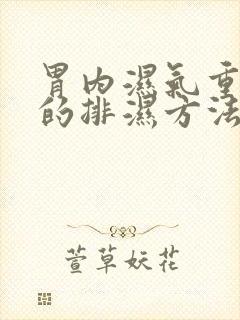 胃内濕氣重
的排濕方法
萱草妖花